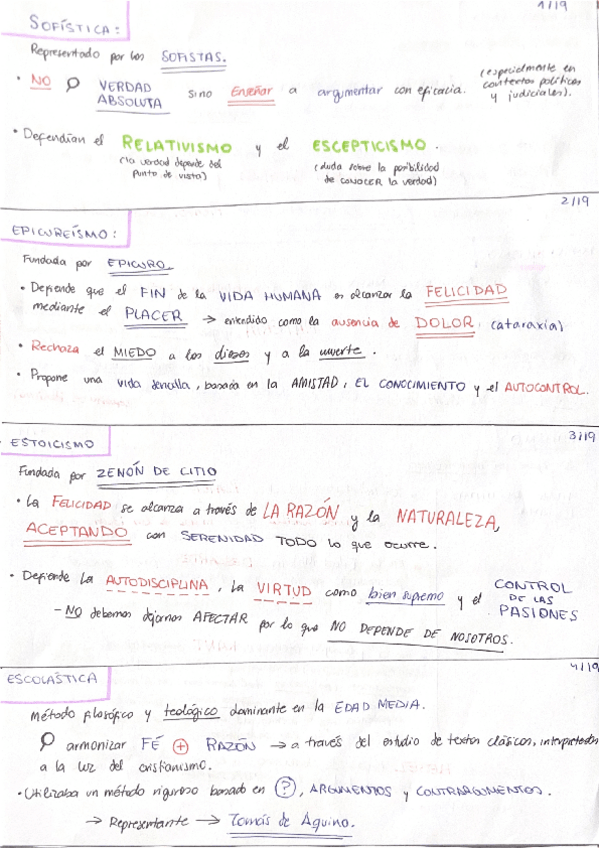 1/19
SOFÍSTICA:
Representado por los SOFISTAS.
• NO VERDAD ABSOLUTA sino Enseñar a argumentar con eficacia. (especialmente en contextos políticos y judiciales).
• Defendían el RELATIVISMO y el ESCEPTICISMO.
(la verdad depende del punto de vista) (duda sobre la posibilidad de CONOCER la verdad)
2/19
EPICUREÍSMO:
Fundada por EPICURO.
• Defiende que el FIN de la VIDA HUMANA es alcanzar la FELICIDAD
mediante el PLACER → entendido como la ausencia de DOLOR (ataraxia)
• Rechaza el MIEDO a los dioses y a la muerte.
• Propone una vida sencilla, basada en la AMISTAD, EL CONOCIMIENTO y el AUTOCONTROL.
3/19
ESTOICISMO
Fundada por ZENÓN DE CITIO
• La FELICIDAD se alcanza a través de LA RAZÓN y la NATURALEZA,
ACEPTANDO con SERENIDAD TODO lo que ocurre.
• Defiende la AUTODISCIPLINA, la VIRTUD como bien supremo y el CONTROL DE LAS PASIONES
- NO debemos dejarnos AFECTAR por lo que NO DEPENDE DE NOSOTROS.
4/19
ESCOLÁSTICA
Método filosófico y teológico dominante en la EDAD MEDIA.
armonizar FÉ + RAZÓN → a través del estudio de textos clásicos, interpretados
a la luz del cristianismo.
• Utilizaba un método riguroso basado en ?, ARGUMENTOS y CONTRARGUMENTOS.
→ Representante → Tomás de Aquino.